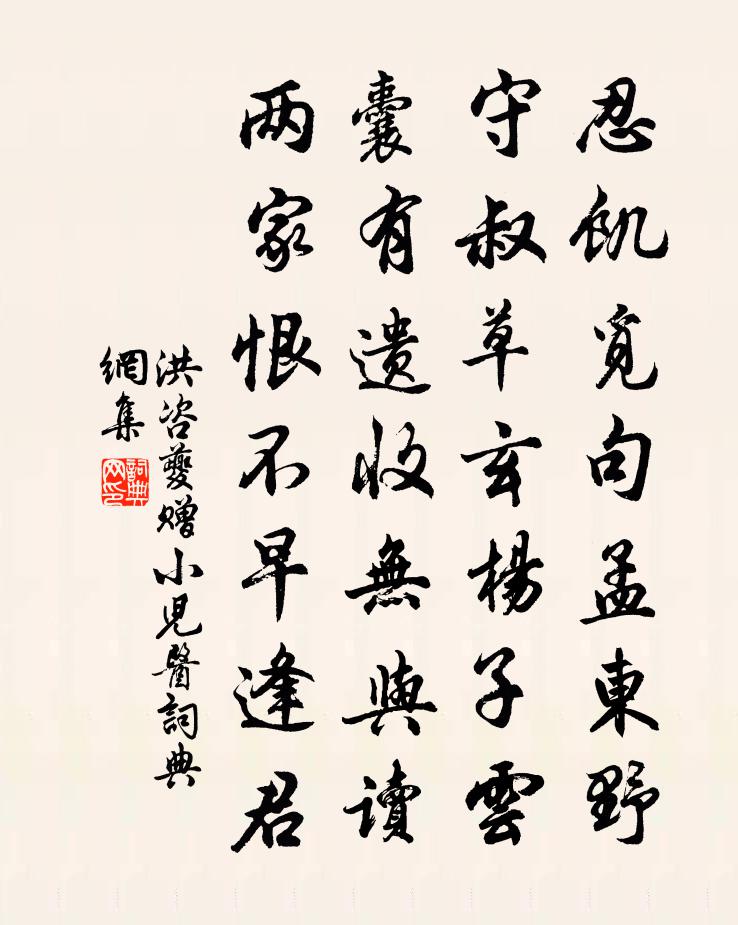 忍飢覓句孟東野
守叔草玄楊子雲
囊有遗收無與读
两家恨不早逢君
洪咨夔赠小兒醫詞典
網集
詞典网印